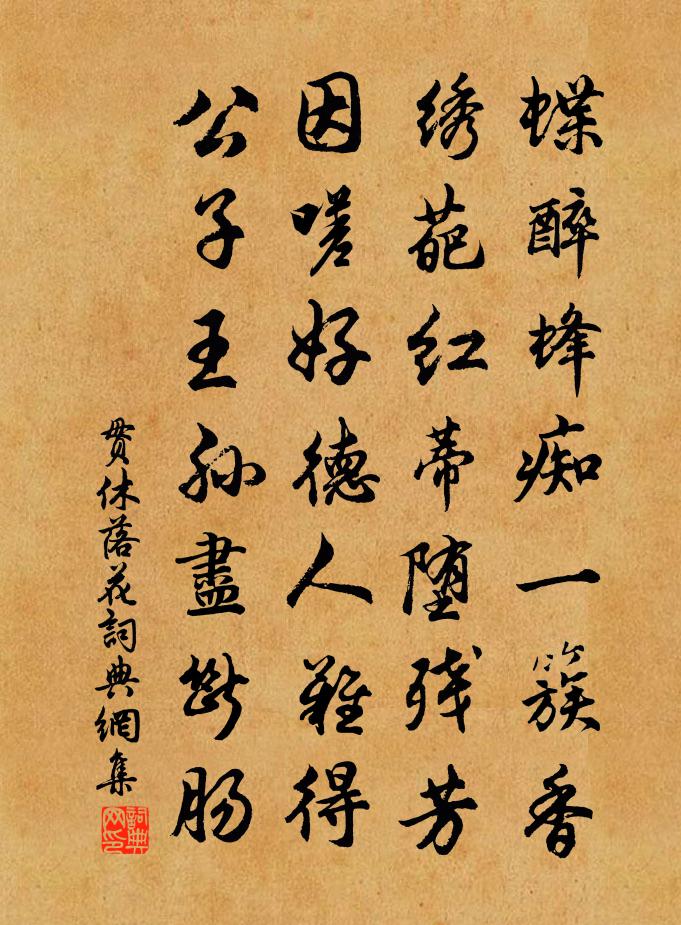 蝶醉蜂痴一簇香
绣葩红蒂堕残芳
因嗟好德人難得
公子王孙盡断肠
貫休落花詞典網集
詞典网印